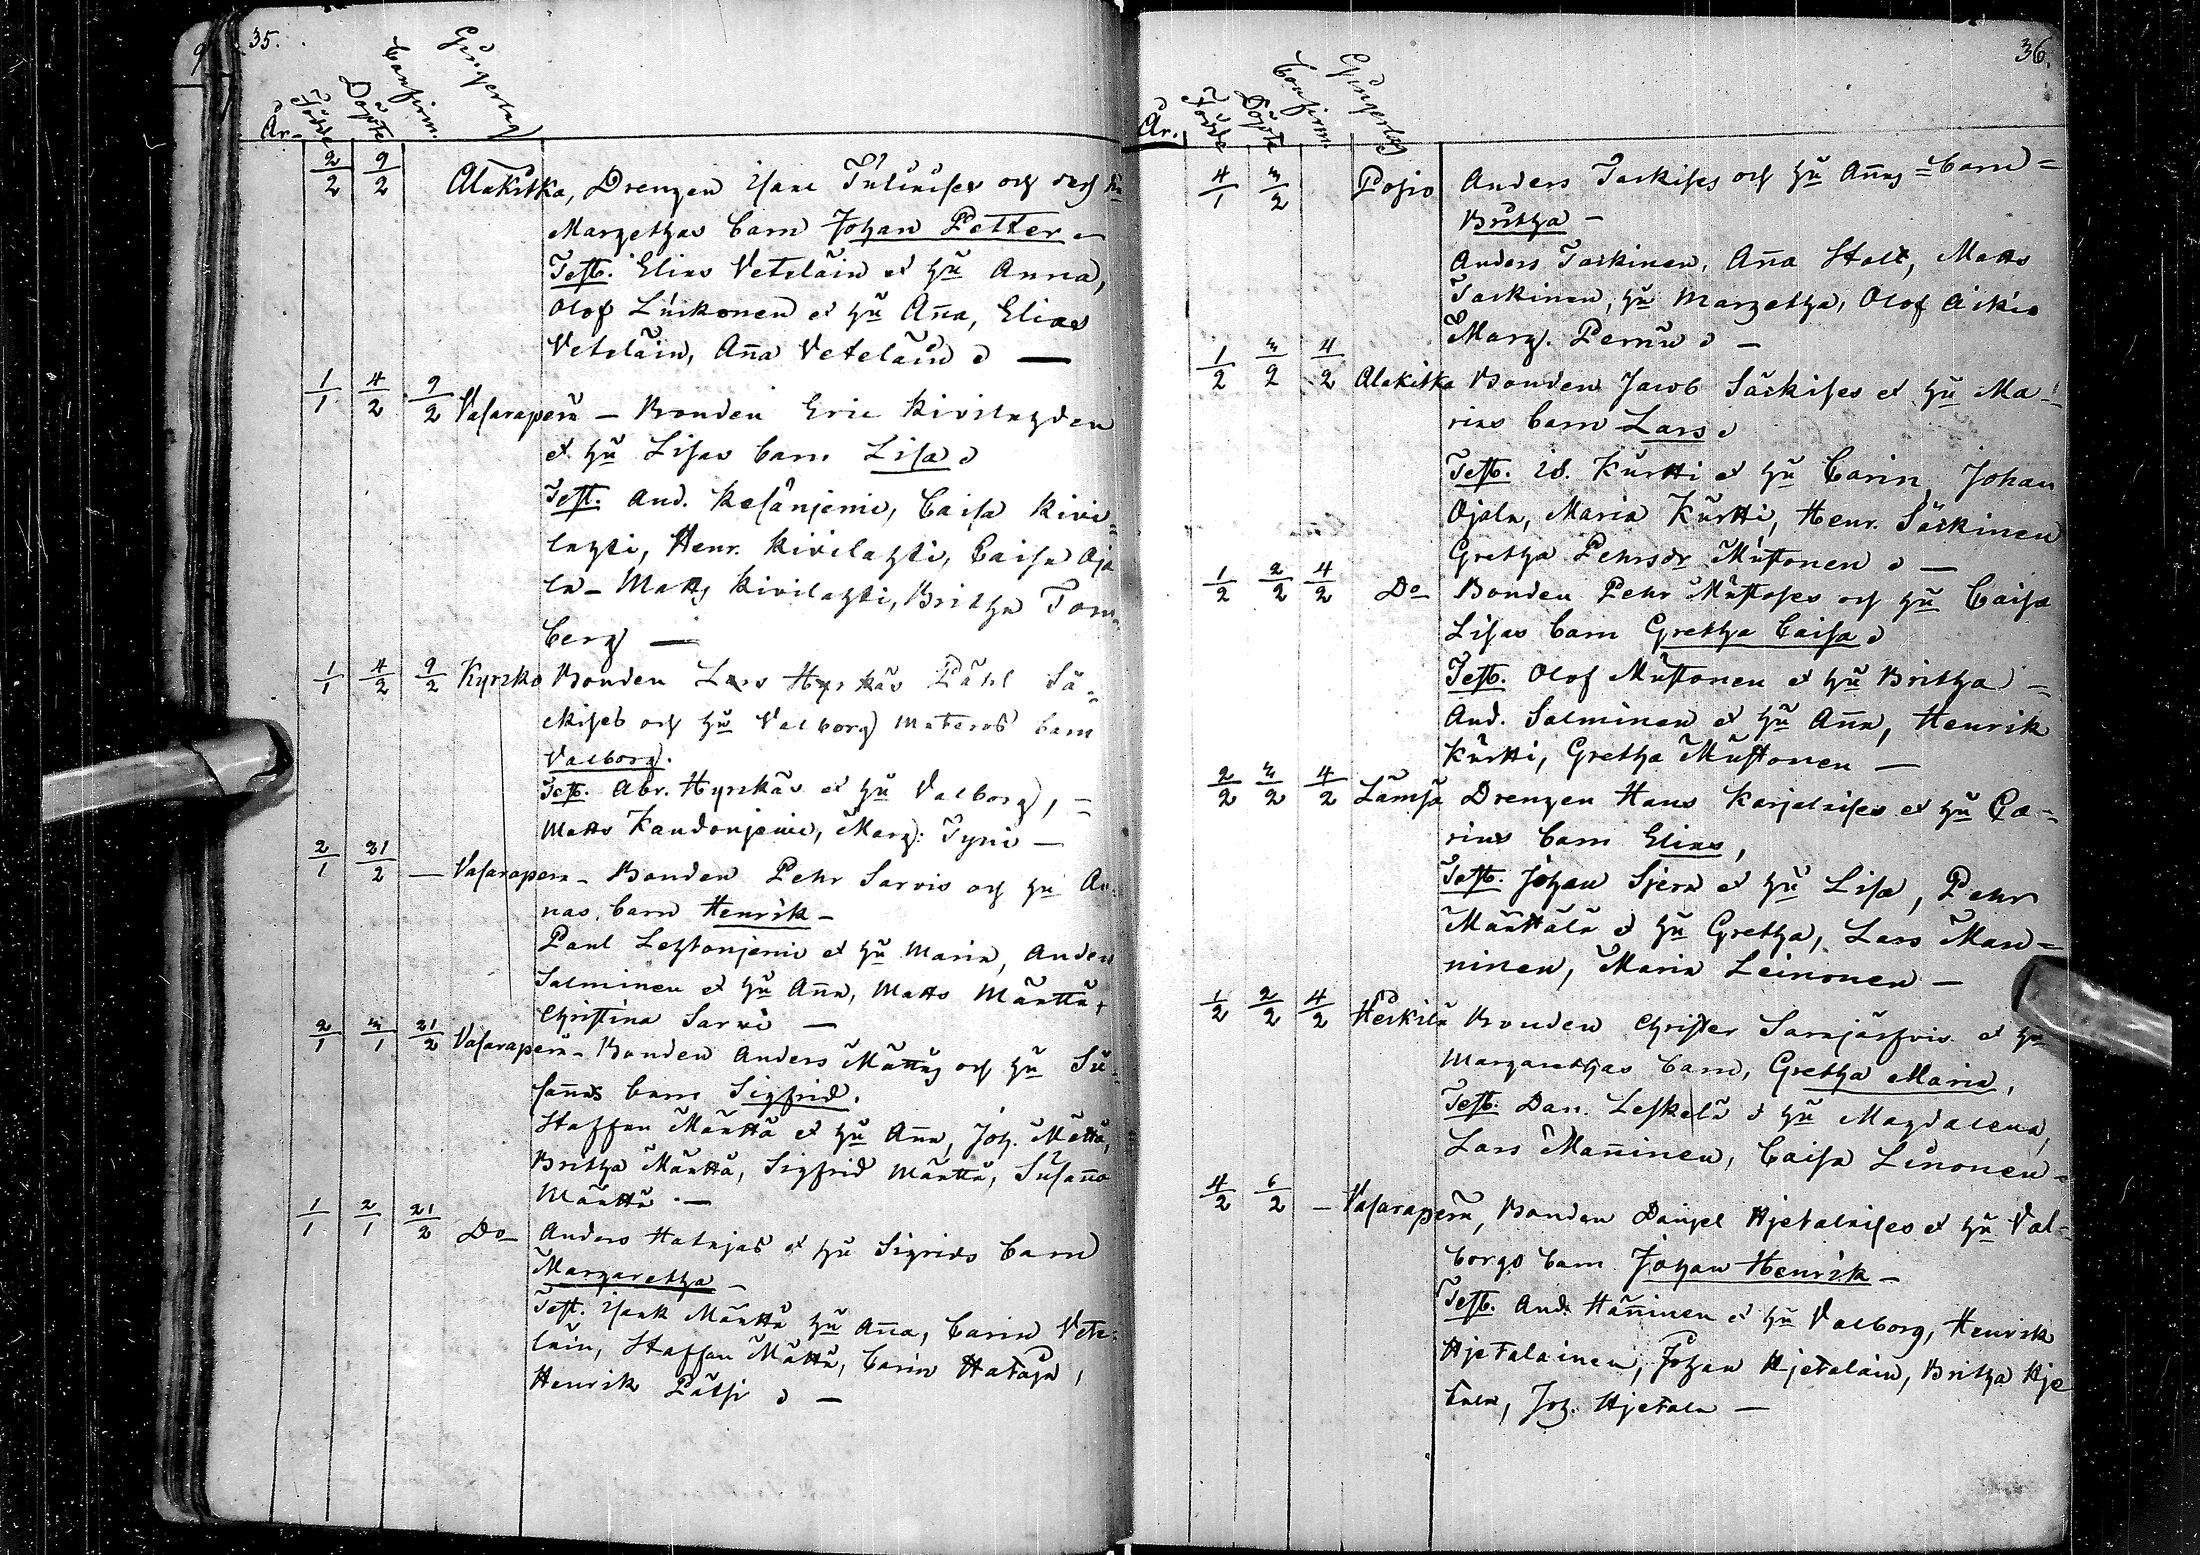 35.
År. Födde Döpte Confirm. Gingerbag
2/2 9/2 Alakitka, Drengen Isaac och des hũ
Margethas barn Johan Petter
Test. Elias Veteläin et hũ Anna,
Olof Liukonen et hũ Aña, Elias
Veteläin, Aña Veteläin —
1/1 4/2 9/2 Vasaraperä — Bonden Eric Kivilagden
et hũ Lisas barn Lisa
Test. And. Kesäniemi, Caisa Kivi=
lagti, Henr. Kivilagti, Caisa Oja
la — Matts Kivilagti, Britha Torn
berg —
1/1 4/2 9/2 Kyrzko Bonden Lars Hyrkäs Påhl Sä=
ckises och hũ Valborg Materos barn
Valborg.
Test. Abr. Hyrskäs et hũ Valborg, =
Matts Kandonjemi, Marg. Tyni —
2/1 21/2 — Vasarapera — Bonden Pehr Sarvis och hũ An
nas, barn Henrik —
Paul Leztonjemi et hũ Maria, Anders
Salminen et hũ Aña, Matts Mänttä,
Christina Sarvi —
2/1 3/1 21/2 Vasaraperä — Bonden Anders Mättäs och hũ Su=
sañas barn Sigfrid.
Staffan Mänttä et hũ Aña, Joh. Mättä,
Britha Mänttä, Sigfrid Mänttä, Susaña
Mänttä. —
1/1 2/1 21/2 Do Anders Hatajas et hũ Sigrids barn
Margaretha —
Test. Isak Mänttä hũ Aña, Carin Vete
läin, Staffan Mättä, Carin Hataja,
Henrik Pätsi —
36.
År. Födde Döpte Confirm. Gingerbag
4/1 3/2 Posio Anders Taskises och hũ Añas = barn =
Britha —
Anders Taskinen, Aña Stolt, Matts
Taskinen, hũ Margetha, Olof Äikiä
Marg. Pernu —
1/2 3/2 4/2 Alakitka Bonden Jacob Säckises et hũ Ma=
rias barn Lars
Test. Is. Kurtti et hũ Carin, Johan
Ojala, Maria Kurtti, Henr. Säckinen
Gretha Pehrsdr Mustonen —
1/2 2/2 4/2 Do Bonden Pehr Mustoses och hũ Caisa
Lisas barn Gretha Caisa
Test. Olof Mustonen et hũ Britha =
And. Salminen et hũ Aña, Henrik
Kurtti, Gretha Mustonen —
2/2 3/2 4/2 Lämsä Drengen Hans Karjalaises et hũ Ca=
rins barn Elias,
Test. Johan Sjera et hũ Lisa, Pehr
Mänttälä et hũ Gretha, Lars Man=
ninen, Maria Leinonen —
1/2 2/2 4/2 Heikilä Bonden Christer Sarajärfvis et hũ
Margarethas barn, Gretha Maria,
Test. Dan. Leskelä et hũ Magdalena,
Lars Mañinen, Caisa Linonen =
4/2 6/2 — Vasaraperä, Bonden Daniel Hjetalaises et hũ Val=
borgs barn Johan Henrik —
Test. And. Häñinen et hũ Valborg, Henrik
Hjetalainen, Johan Hjetalain, Britha Hje
tala, Joh. Hjetala —